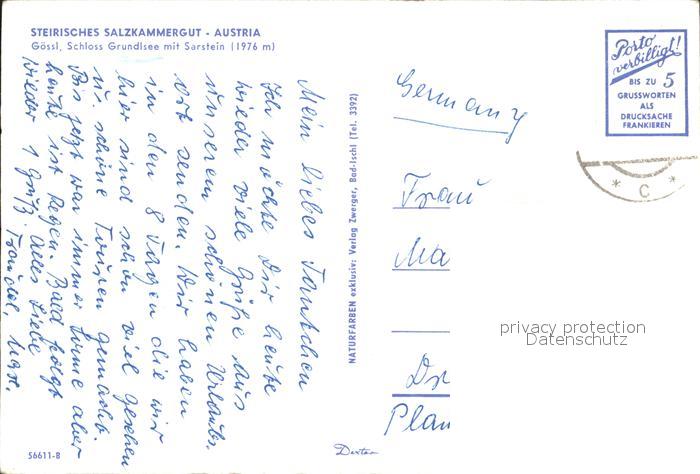 STEIRISCHES SALZKAMMERGUT - AUSTRIA
Gössl, Schloss Grundlsee mit Sarstein (1976 m)
Mein liebes Tantchen
Ich möchte Dir heute
wieder viele Grüße aus
unserem schönen Urlaubs-
ort senden. Wir haben
in den 8 Tagen die wir
hier sind schon viel gesehen
u. schöne Touren gemacht.
Bis jetzt war immer Sonne aber
heute ist Regen. Bald folgt
wieder 1 Gruß. Alles Liebe
Traudel,
NATURFARBEN exklusiv: Verlag Zwerger, Bad-Ischl (Tel. 3392)
Porto
verbilligt!
BIS ZU 5
GRUSSWORTEN
ALS
DRUCKSACHE
FRANKIEREN
* C *
Germany
Frau
Ma
privacy protection
Datenschutz
Dr
Plan
56611-B
Dexter